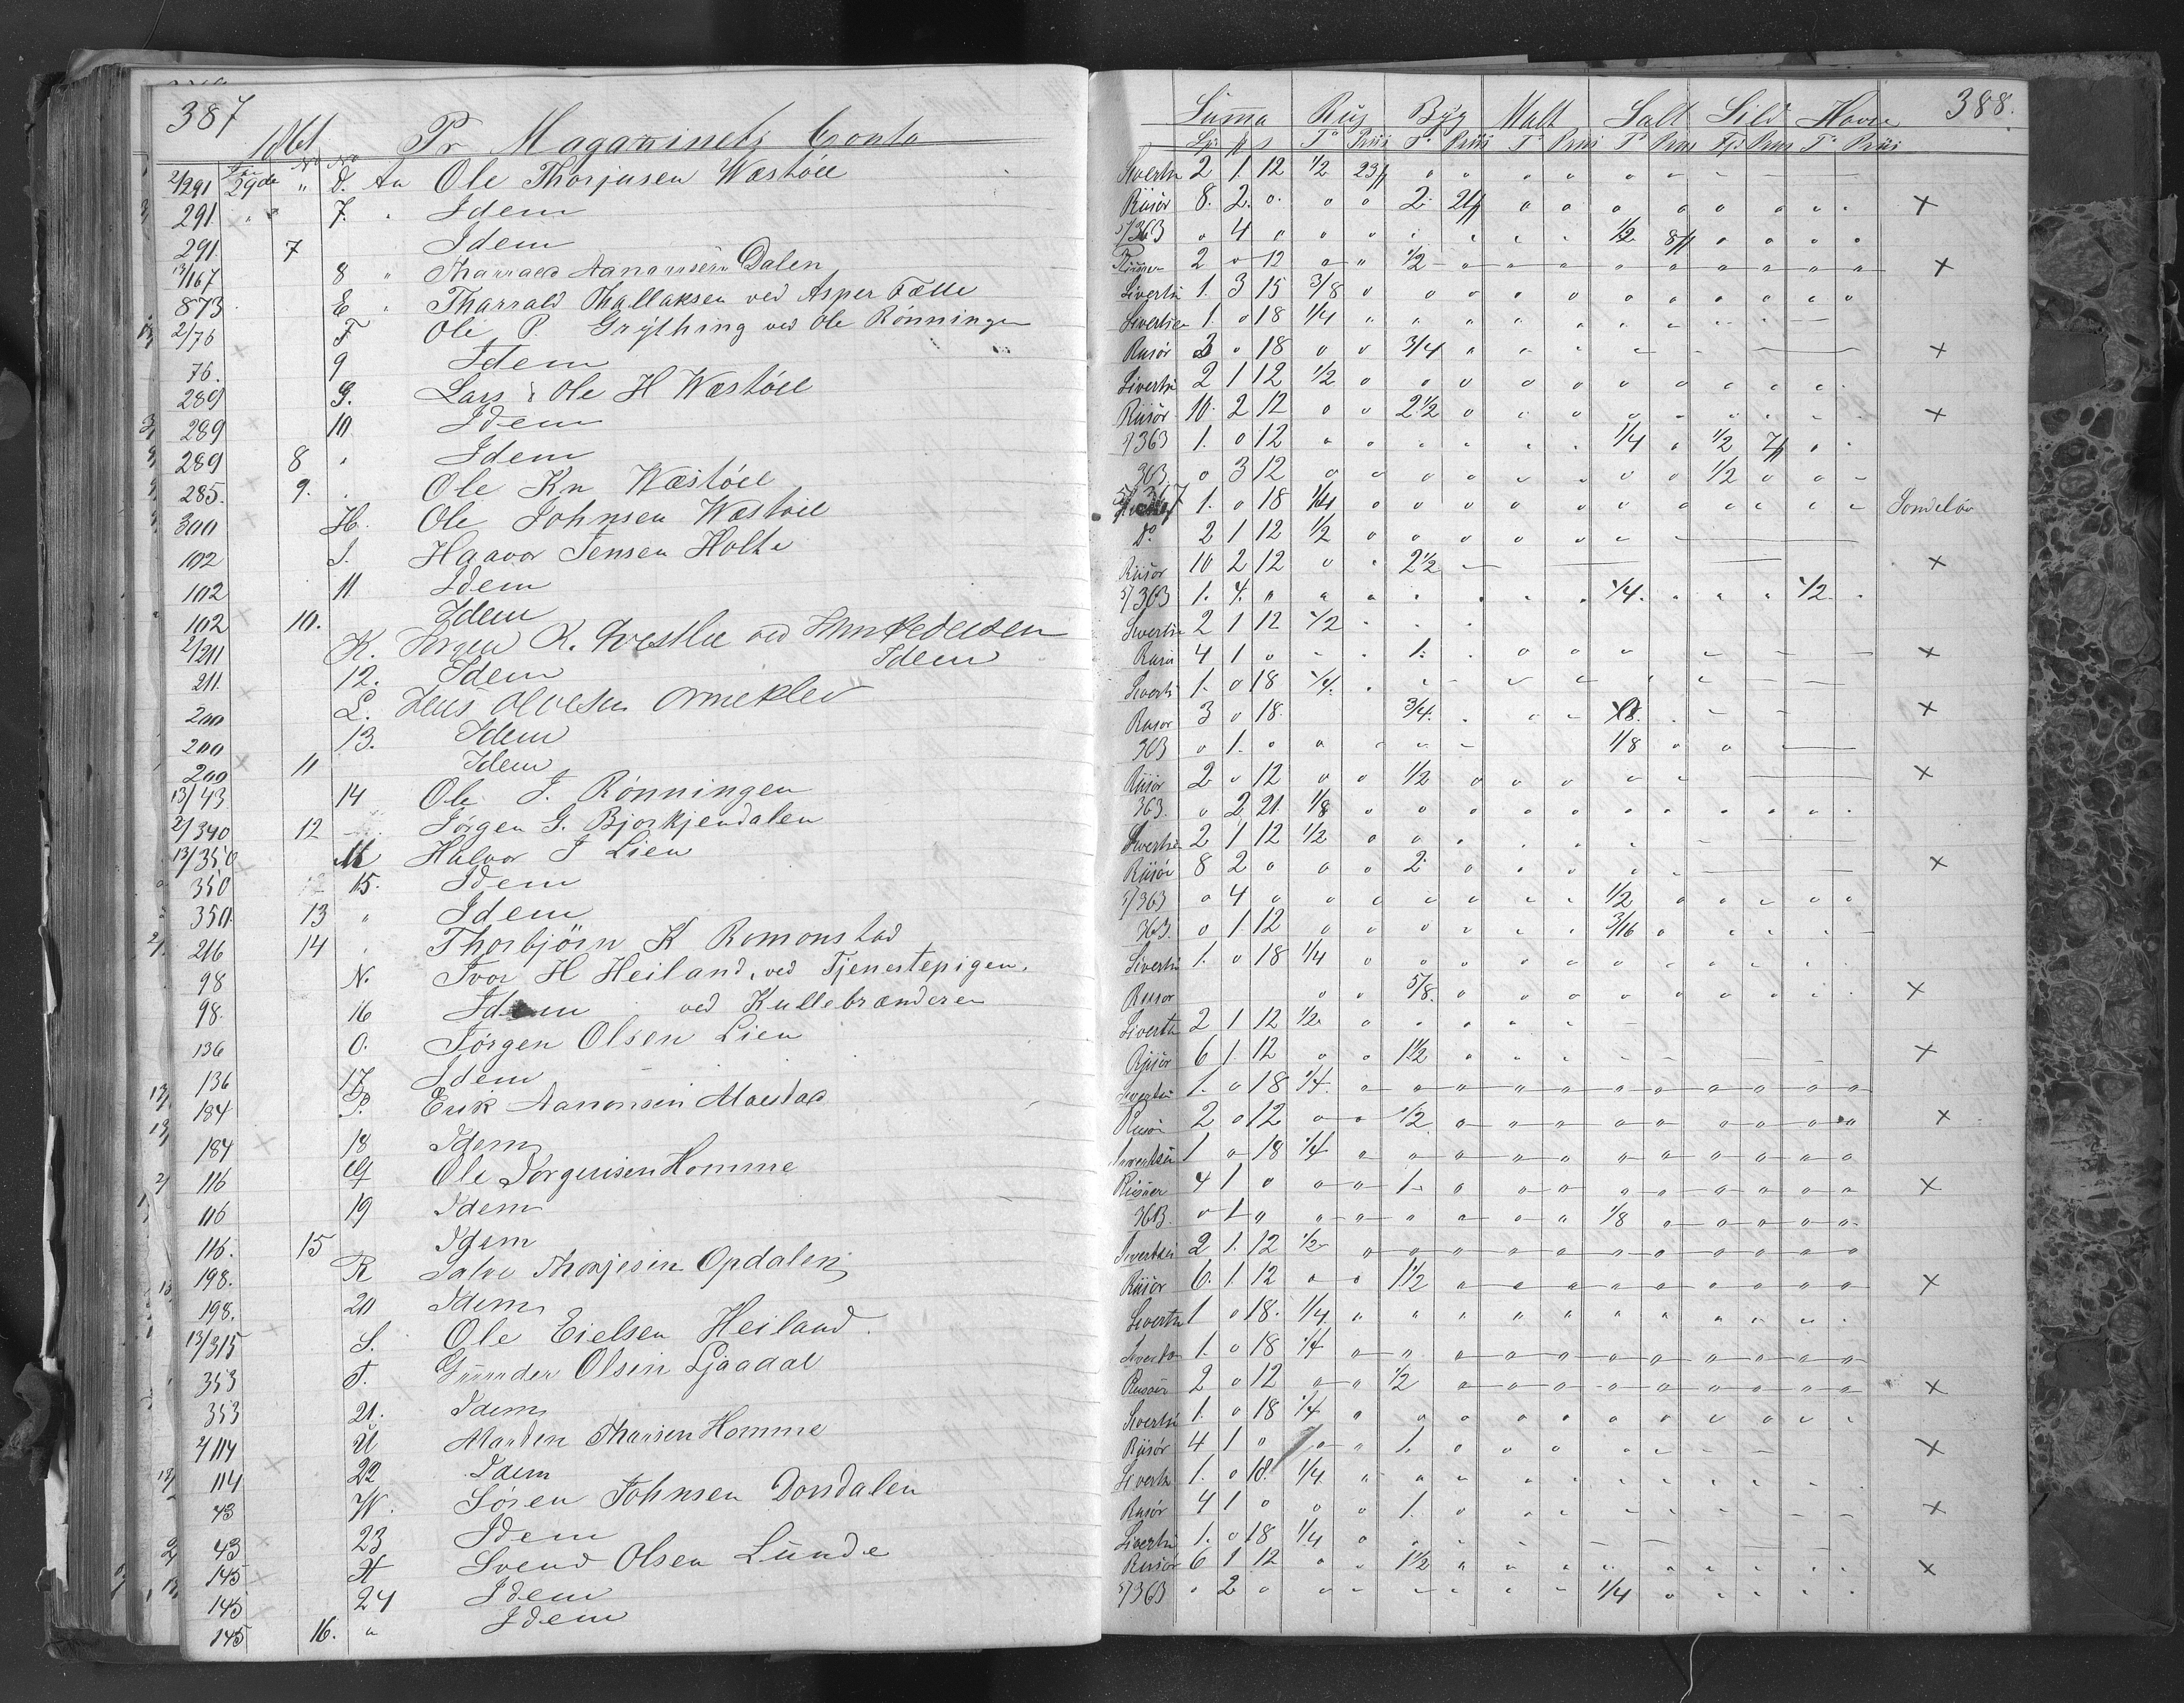 387
1861 Pr Magazinets Conto
2/291 29de " D. An Ole Thorjusen Wæstöel
291. " " 7. " Idem
291. 7 Idem
13/167 8 " Tharrald Aanonsen Dalen
873 E " Tharrald Thallaksen ved Asper Fælle
2/76 F Ole P. Grything ved Ole Rönningen
76. 9 Idem
289 G. Lars & Ole H Wæstöel
289 10 Idem
289 8 " Idem
285. 9. " Ole Kn Wæstöel
300 H. Ole Johnsen Wæstöel
102 I. Haavor Jensen Holte
102 11 Idem
102 10. Idem
2/211 K. Jörgen K. Vestlie ved Pedersen
211. 12. Idem Idem
200 L. Jens Olvesen Omeklev
200 13. Idem
200 11 Idem
13/43 14 Ole J. Rönningen
2/340 12 Jörgen G. Bjorkjendalen
13/350 M Halvor J Lien
350 15. Idem
350. 13 " Idem
216 14 " Thorbjörn K Romonstad
98 N. Ivor H Heiland, ved Tjenestepigen.
98. 16 Idem ved Kullebrænderen
136 O. Jörgen Olsen Lien
136 17 Idem
184 P. Erik Aanonsen Moestad
184 18 Idem
116 Q Ole Jörgensen Homme
116 19 Idem
116. 15 Idem
198. R Salve Thorjesen Opdalen
198. 20 Idem
13/315 S. Ole Eielsen Heiland.
353 T. Gunder Olsen Ljaadal
353 21. Idem
2/114 U Marten Tharsen Homme
114 22 Idem
43 W. Sören Johnsen Dorsdalen
43 23 Idem
145 X Svend Olsen Lunde
145 24 Idem
145 16. " Idem
388.
Summa Rug Byg Malt Salt Sild Havre
Siverts 2 1 12 1/2 23
Riisör 8. 2. 0. 2. 21 ×
5/363 0 4 0 1/2 8
Riisöer 2 0 12 1/2 ×
Siverts 1. 3 15 3/8
Sivertsen 1. 0 18 1/4
Riisör 3 0 18 3/4 ×
Siverts 2 1 12 1/2
Riisör 10. 2 12 2 1/2 ×
363 1. 0 12 1/4 1/2 7
363 0 3 12 1/2
1. 0 18 1/4 Söndelöv
Do 2 1 12 1/2
Riisör 10 2 12 2 1/2 ×
5/363 1. 4. 0 1/4. 1/2
Sivertsen 2 1 12 1/2
Riisör 4 1 0 1. ×
Siverts 1. 0 18 1/4.
Riisör 3 0 18. 3/4. ×
363 0 1. 0 1/8
Riisör 2 0 12 1/2 ×
363. 0 2 21 1/8
Sivertsen 2 1 12 1/2
Riisör 8 2 0 2 ×
5/363 0 4 0 1/2
363. 0 1 12 3/16
Siverts 1. 0 18 1/4
Riisör 5/8. ×
Siverts 2 1 12 1/2
Riisör 6 1. 12 1 1/2 ×
Sivertsen 1. 0 18 1/4.
Riisör 2 0 12 1/2 ×
Sivertsen 1 0 18 1/4
Riisöer 4 1 0 1 ×
363. 0 1 0 1/8
Sivertsen 2 1. 12 1/2
Riisör 6. 1. 12 1 1/2 ×
Siverts 1 0 18. 1/4
Siverts 1. 0 18 1/4
Riisör 2 0 12 1/2 ×
Siverts 1. 0 18 1/4
Riisör 4 1 0 1. ×
Siverts 1. 0 18. 1/4
Riisör 4 1 0 1. ×
Siverts 1. 0 18 1/4
Riisör 6 1 12 1 1/2 ×
5/363 0 2 0 1/4